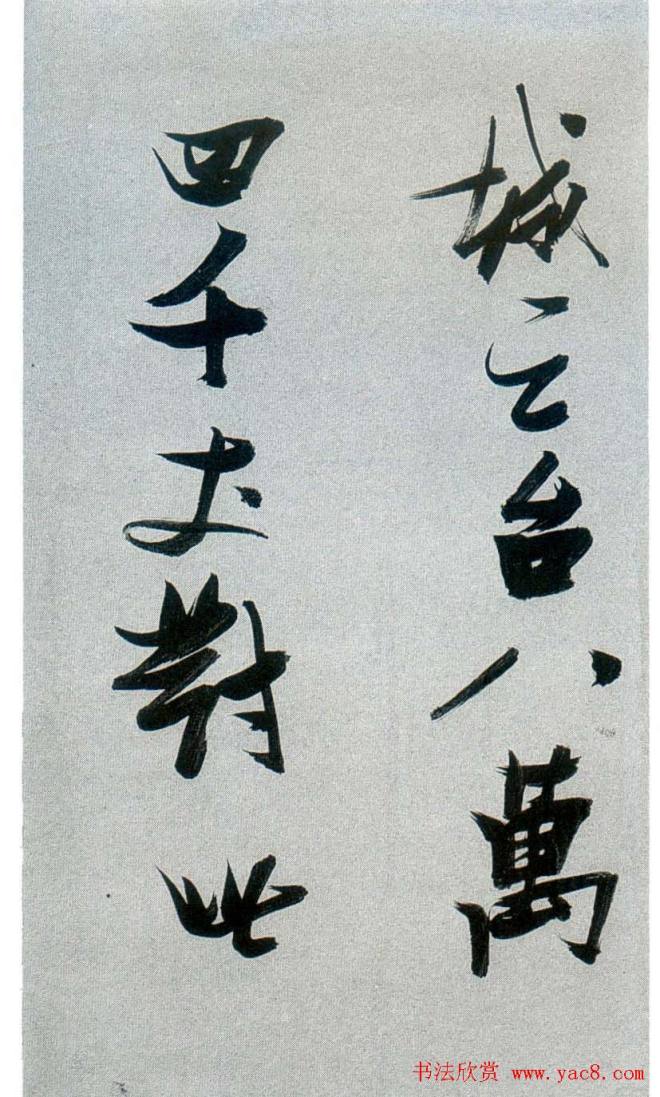 城天台八萬
四千丈對此
书法欣赏 www.yac8.com